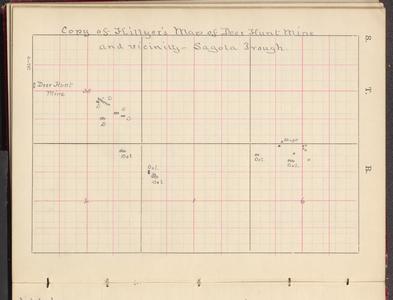 Copy of Hillyer's Map of Deer Hunt Mine
and vicinity - Sagola Trough.
S.
T.
R.
Deer Hunt
Mine
D
D
D
Dol.
Dol.
Dol.
Dol.
Dol.
2
1
6